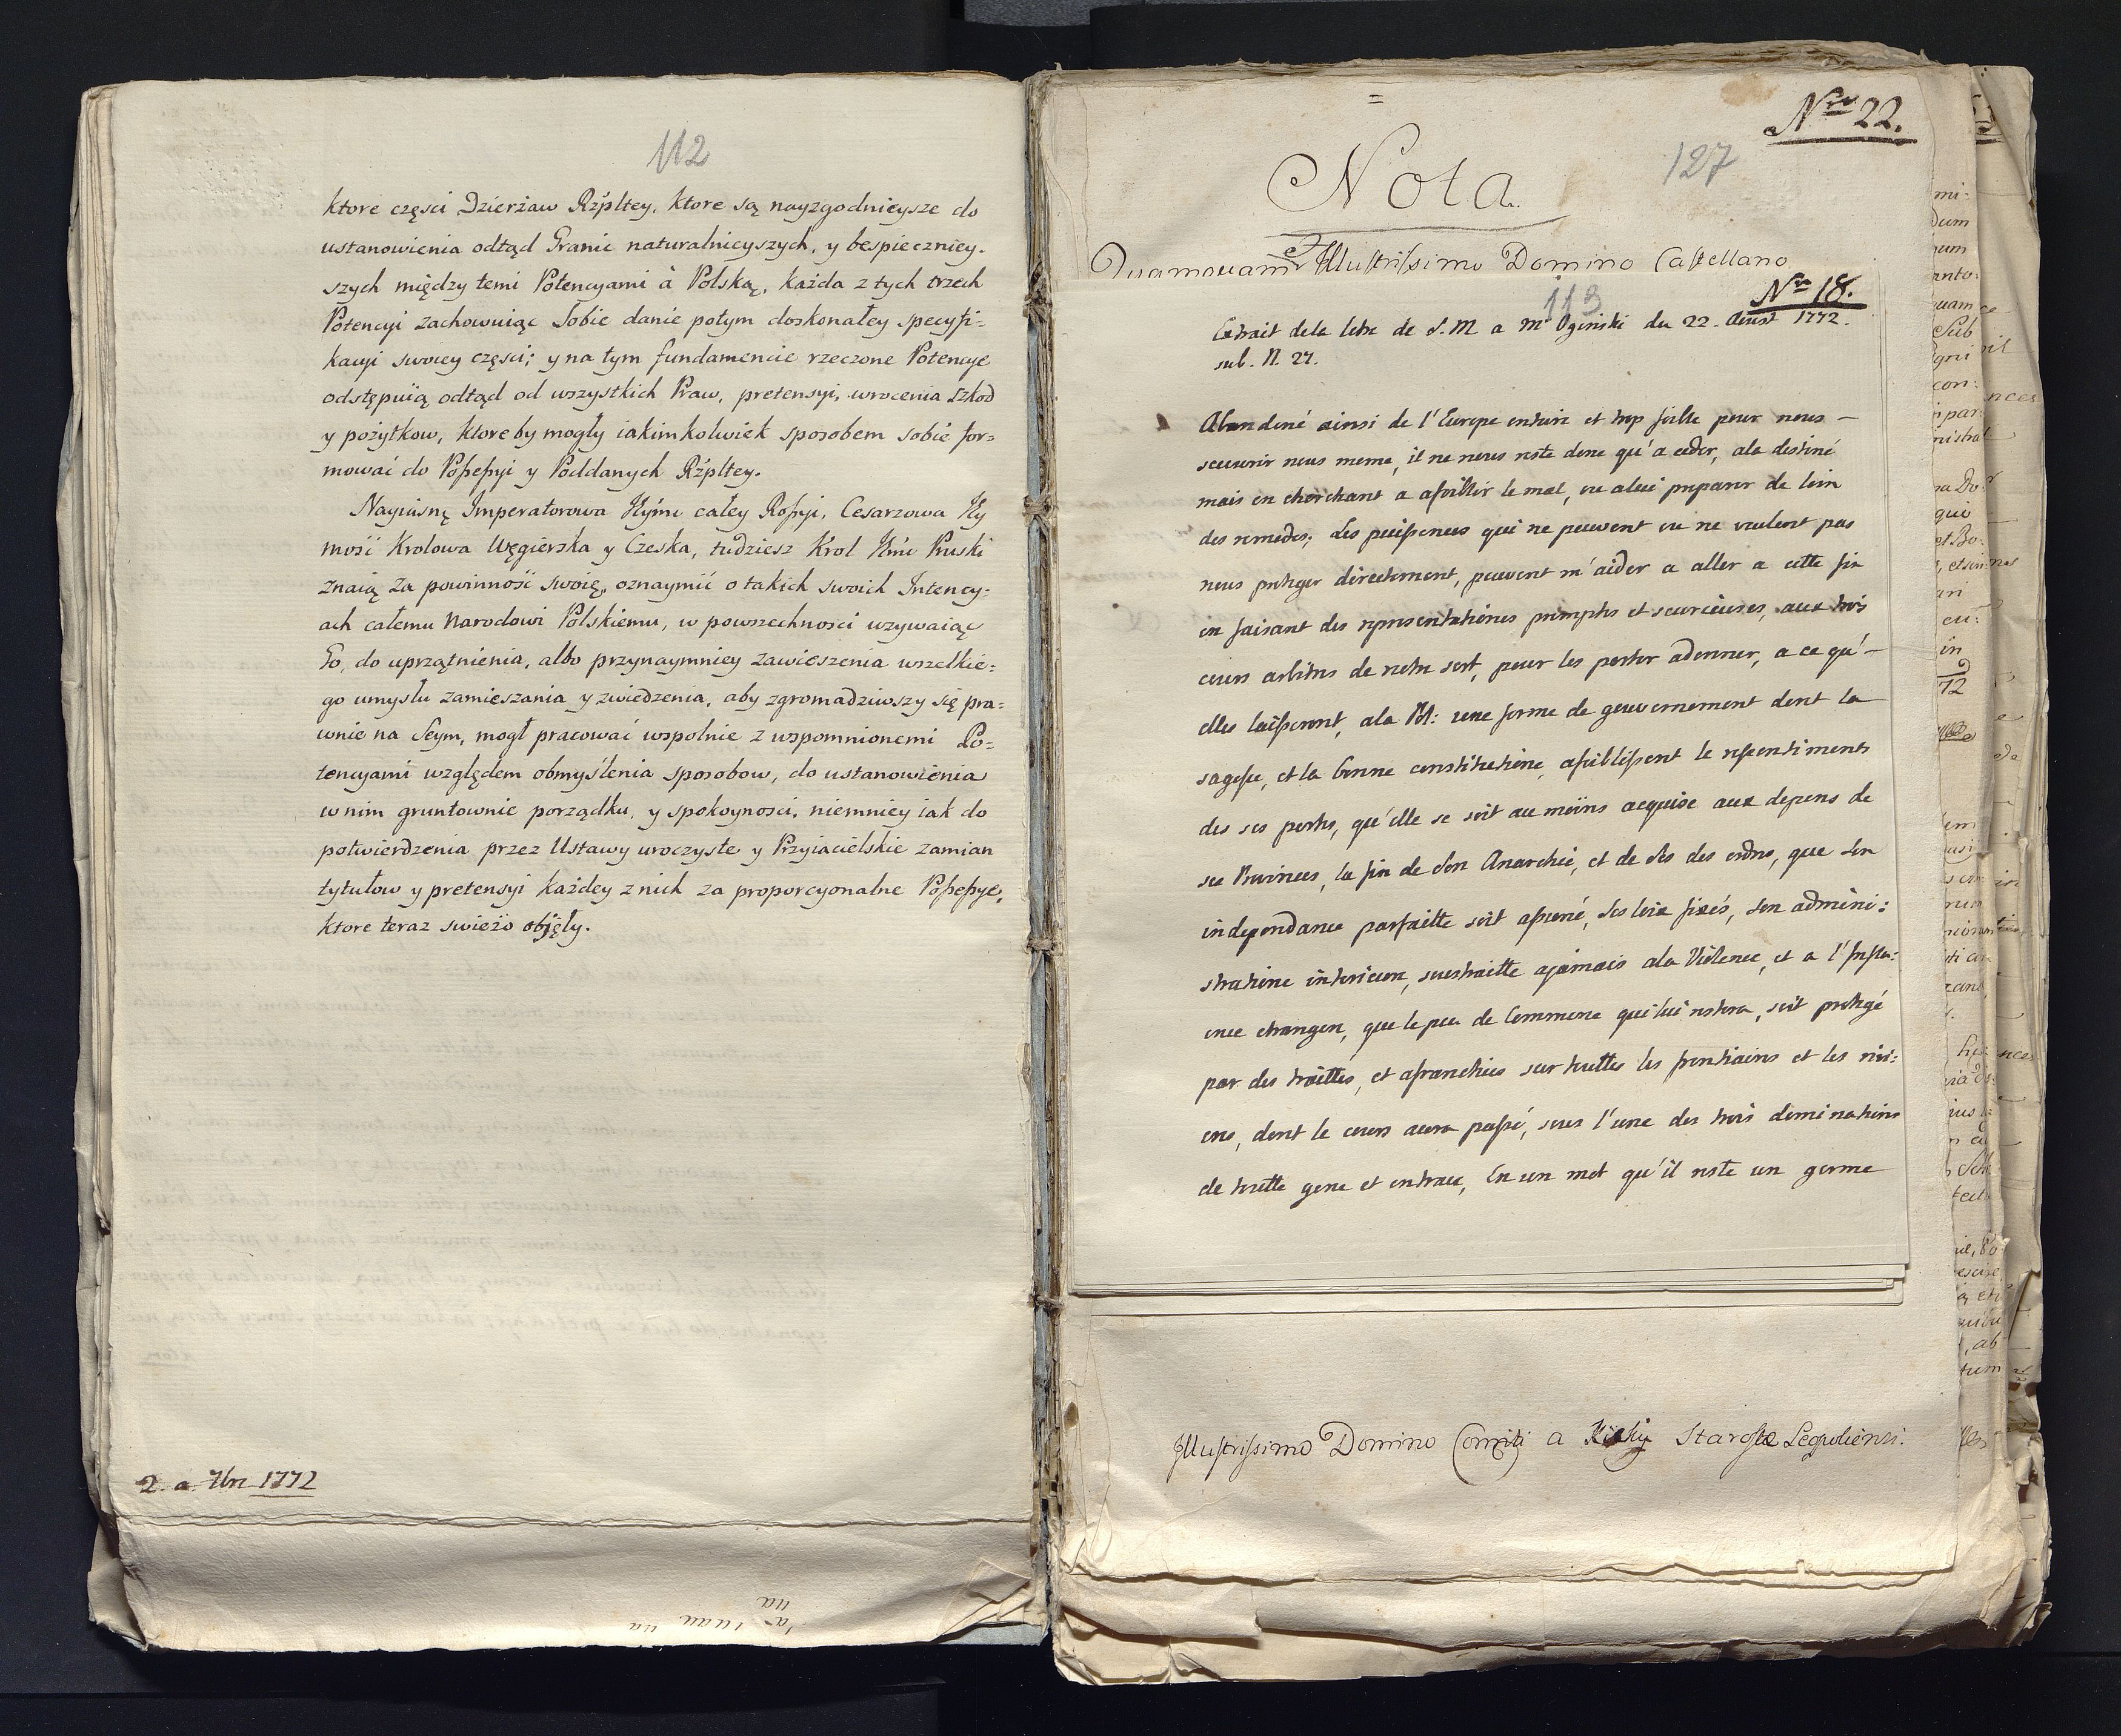 112
ktore częsci Dzierżaw Rżpltey, ktore są nayzgodnieysze do
ustanowienia odtąd Granic naturalnieyszych, y bespieczniey-
szych między temi Potencyami à Polską, każda z tych trzech
Potencyi zachowuiąc Sobie danie potym doskonałey specyfi-
kacyi swoiey częsci; y na tym fundamencie rzeczone Potencye
odstępuią odtąd od wszystkich Praw, pretensyi, wrocenia szkod
y pożytkow, ktoreby mogły iakimkolwiek sposobem sobie for=
mować do Possessyi y Poddanych Rżpltey.
Nayiasnę Imperatorowa Jɱ́ć całey Rossyi, Cesarzowa Jey
mość Krolowa Węgierska y Czeska, tudziesz Krol Jmć Pruski
znaią za powinność swoię, oznaymić o takich swoich Intency-
ach całemu Narodowi Polskiemu, w powszechnosci wzywaiąc
Go, do uprzątnienia, albo przynaymniey zawieszenia wszelkie=
go umysłu zamieszania y zwiedzenia, aby zgromadziwszy się pra=
wnie na Seym, mogł pracować wspolnie z wspomnionemi Po=
tencyami względem obmyślenia sposobow, do ustanowienia
w nim gruntownie porządku, y spokoynosci, niemniey iak do
potwierdzenia przez Ustawy uroczyste y Przyiacielskie zamian
tytułow y pretensyi każdey z nich za proporcyonalne Possessye,
ktore teraz swieżo objęły.
2. a. 7bri 1772
Nro 22.
Nota
127
Illustrissimo Domino Castellano
113
Nro 18.
Extrait dela letre de S.M a Mr Oginski du 22. Aoust 1772.
sub. N. 27.
Abandoné ainsi de l'Europe entiere et trop foible pour nous
secourir nous meme, il ne nous reste donc qu'a ceder, ala destiné
mais en cherchant a afoiblir le mal, ou alui preparer de loin
des remedes; Les puissences qui ne peuvent ou ne veulent pas
nous proteger directement, peuvent m'aider a aller a cette fin
en faisant des representations promptes et serieuses, aux trois
cours arbitres de notre sort, pour les porter adonner, a ce qu'
elles laisseront, ala Pol: une forme de gouvernement dont la
sagesse, et la bonne constitutione, afoiblissent le ressentiments
des ses pertes, qu'elle se soit au moins acquise aux depens de
ses Provinces, la fin de son Anarchie, et de ses des ordres, que son
independance parfaitte soit assuré, ses loix fixés, son admini:
stratione interieure, soustraitte ajamais ala Violence, et a l'Influ:
ence etrangere, que le peu de Commerce qui lui restera, soit protegé
par des traittes, et afranchies sur toutte les frontiaires et les rivi:
eres, dont le cours aura passé, sous l'une des trois dominations
de toutte gene et entrave, En un mot qu'il reste un germe
Illustrissimo Domino Comiti a Kicky Starostæ Leopoliensi.